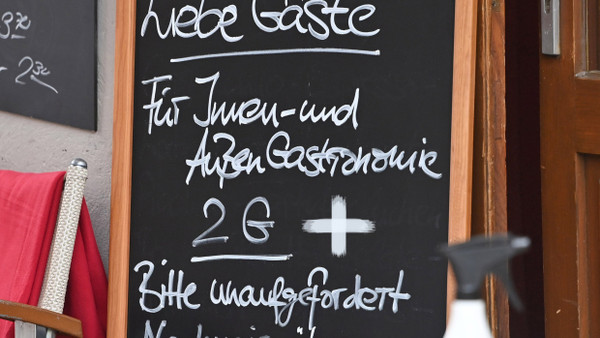 Liebe Gäste
Für Innen-und
Außen Gastronomie
2G +
Bitte unaufgefordert